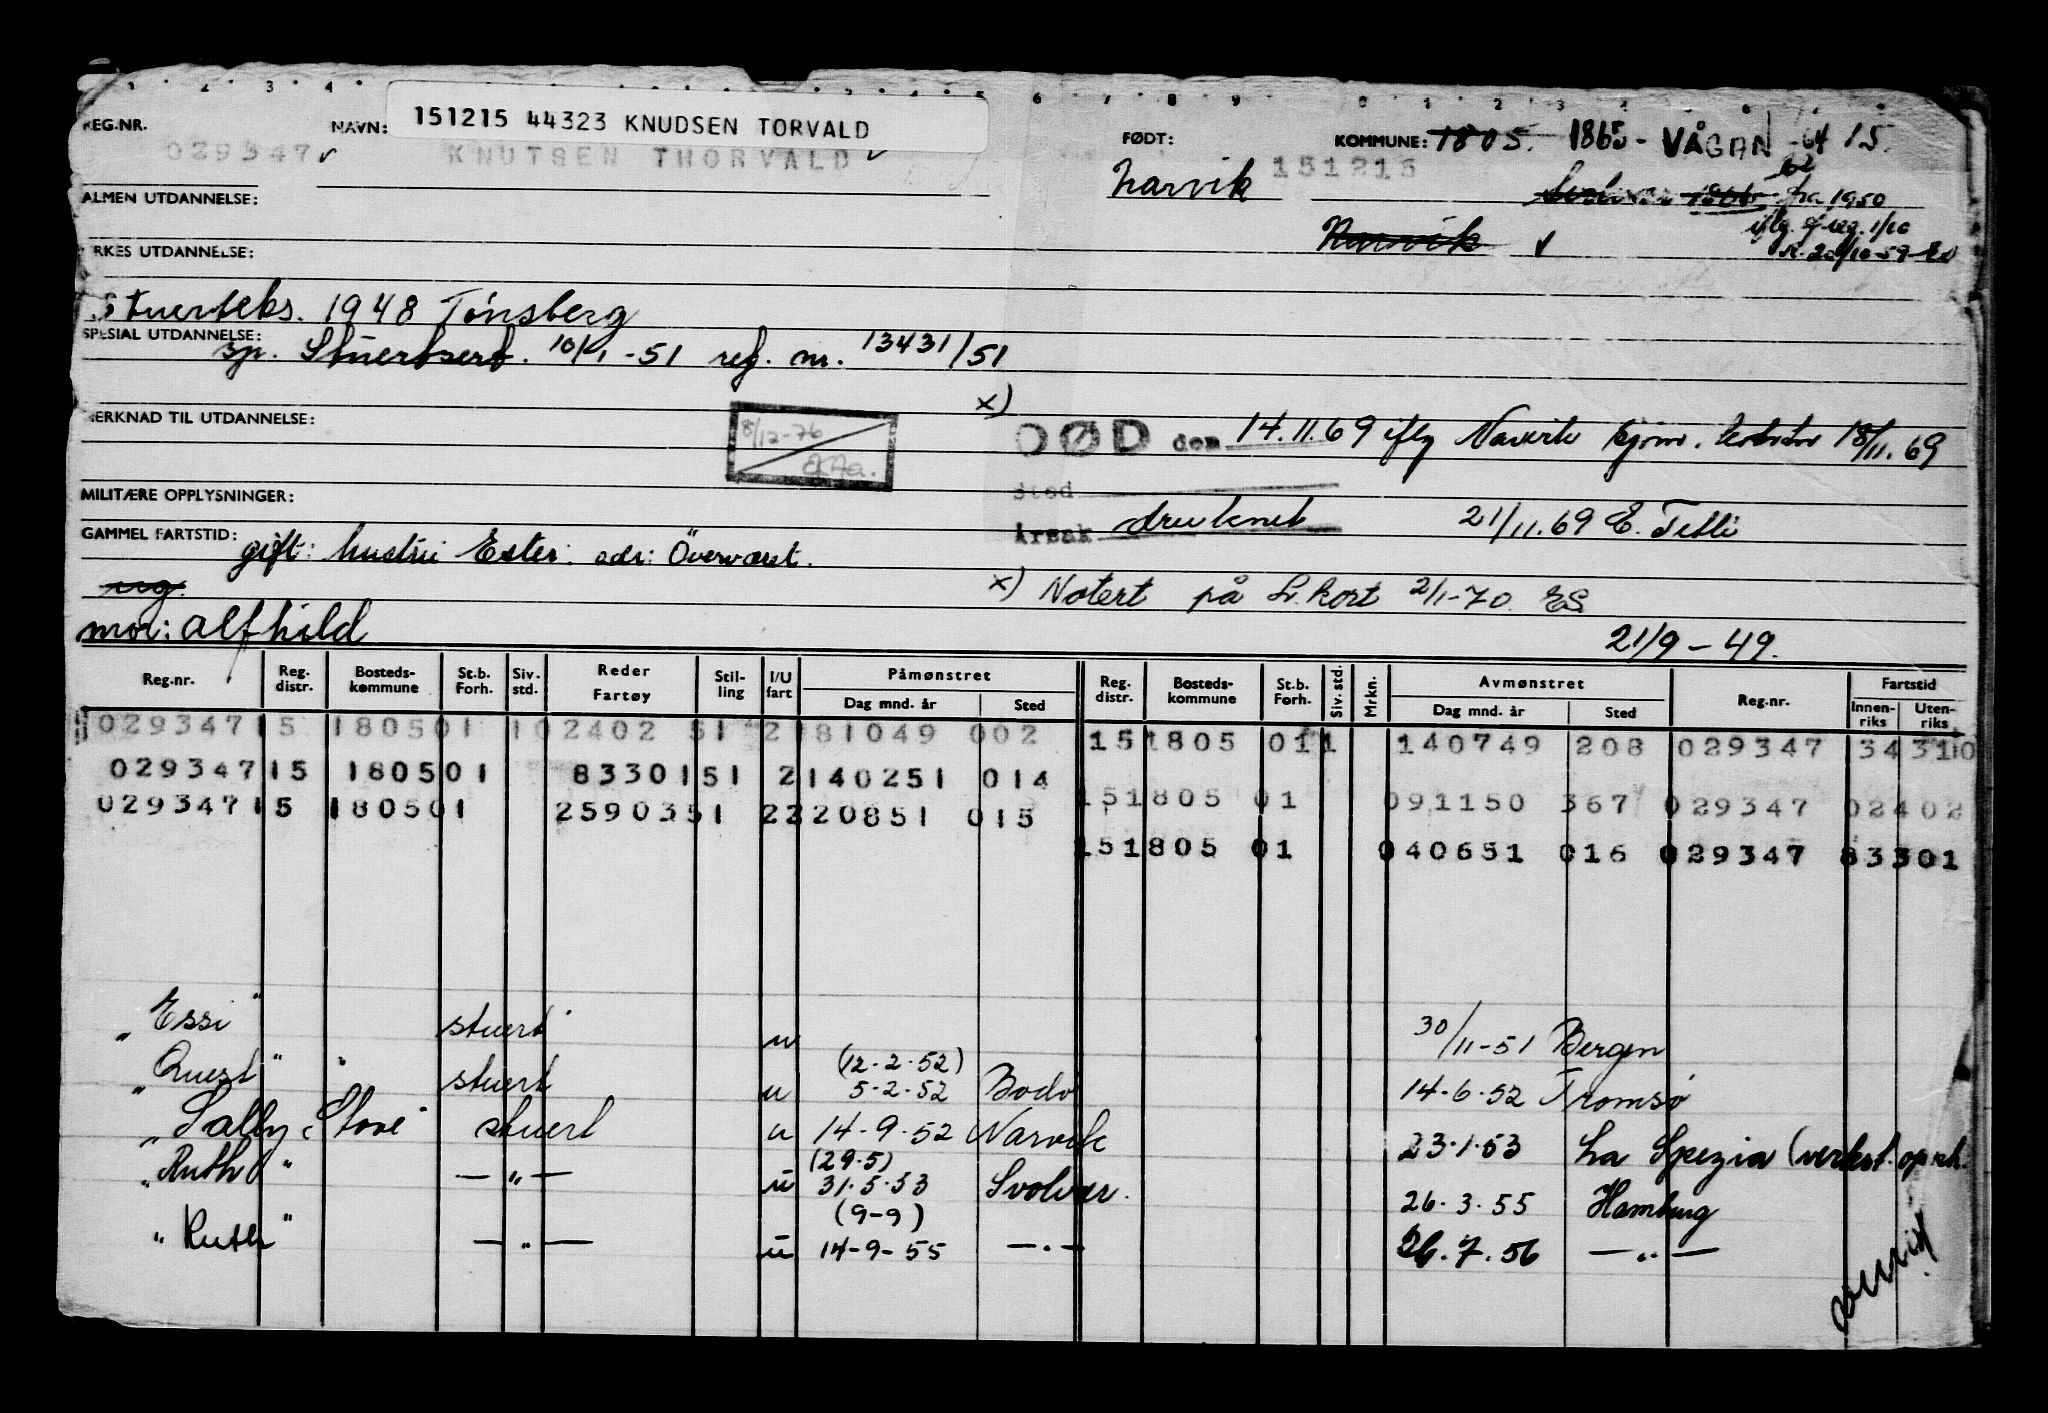 REG.NR. NAVN: 151215 44323 KNUDSEN TORVALD FØDT: KOMMUNE: 1805. 1865 - VÅGAN -64 15.
029347 KNUTSEN THORVALD Narvik 151215
ALMEN UTDANNELSE: 1866 fra 1950
Narvik iflg. reg. 1/10
YRKES UTDANNELSE:
Stuerteks. 1948 Tønsberg
SPESIAL UTDANNELSE: sp. Stuertsert. 10/1-51 reg. nr. 13431/51
x)
MERKNAD TIL UTDANNELSE: 8/12-76 DØD den 14.11.69 iflg Narvik sjøm. kontor 18/11.69
MILITÆRE OPPLYSNINGER: Sted
Årsak druknet 21/11.69 E.
GAMMEL FARTSTID: gift: hustru Ester. adr: Överværet.
ug. x) Notert på kort 2/1-70 ES
mor: Alfhild 21/9-49.
Reg.nr. Reg. distr. Bosteds-kommune St.b. Forh. Siv. std. Reder Fartøy Stil-ling I/U fart Påmønstret Dag mnd. år Sted Reg. distr. Bosteds-kommune St.b. Forh. Siv. std. Mrkn. Avmønstret Dag mnd. år Sted Reg.nr. Fartstid Innen-riks Uten-riks
029347 15 1805 01 1 02402 51 2 181049 002 15 1805 01 1 140749 208 029347 34 310
029347 15 1805 01 83301 51 2 140251 014 15 1805 01 091150 367 029347 02402
029347 15 1805 01 25903 51 2 220851 015 15 1805 01 040651 016 029347 83301
"Essi" stuert u 30/11-51 Bergen
"Quest" stuert u (12.2.52) 5.2.52 Bodø 14.6.52 Tromsø
"Sally Stove" stuert u 14-9-52 Narvik 23.1.53 La Spezia (verkst. opph.
"Ruth" —"— u (29.5) 31.5.53 Svolvær. 26.3.55 Hamburg
"Ruth" —"— u (9-9) 14-9-55 —"— 26.7.56 —"—